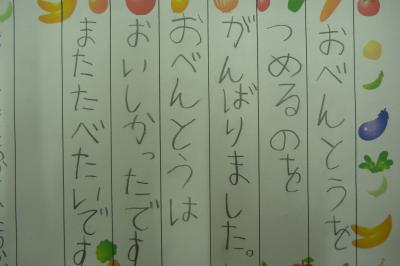 おべんとうを
つめるのを
がんばりました。
おべんとうは
おいしかったです
またたべたいです